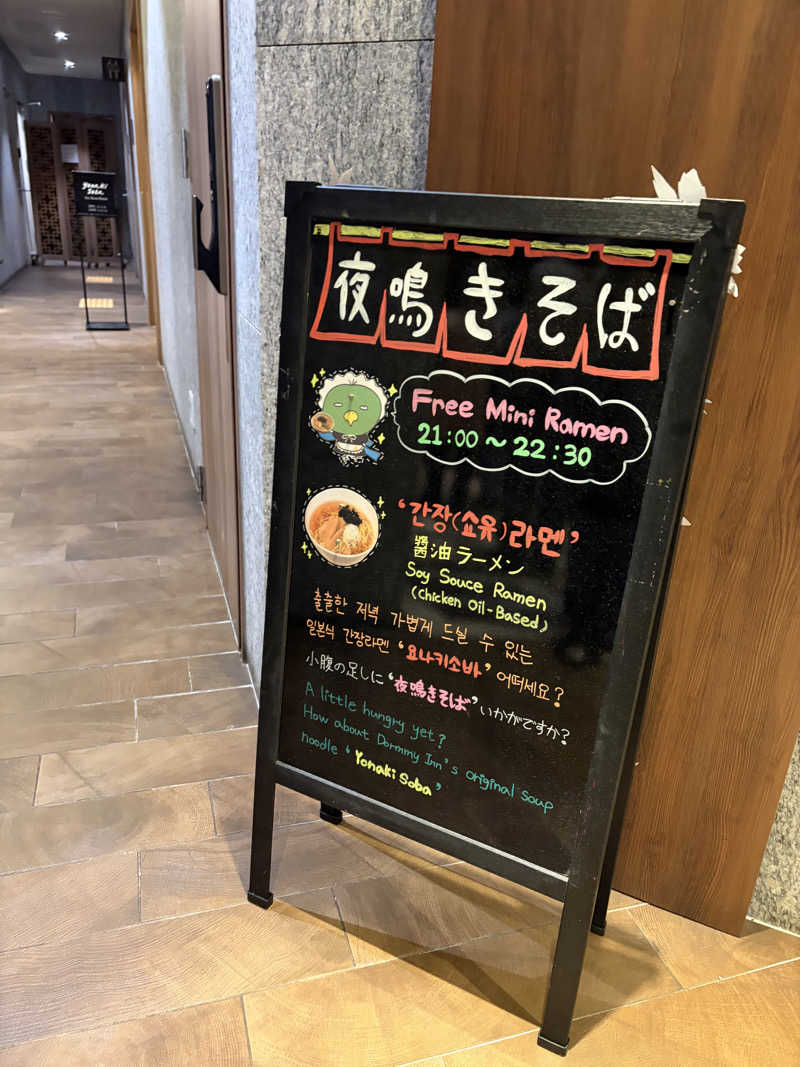 夜鳴きそば
Free Mini Ramen
21:00～22:30
'간장(쇼유)라멘'
醬油ラーメン
Soy Souce Ramen
(Chicken Oil-Based)
출출한 저녁 가볍게 드실 수 있는
일본식 간장라멘 '요나키소바' 어떠세요?
小腹の足しに'夜鳴きそば'いかがですか?
A little hungry yet?
How about Dormmy Inn's original soup
noodle 'Yonaki Soba'
Yonaki
Soba